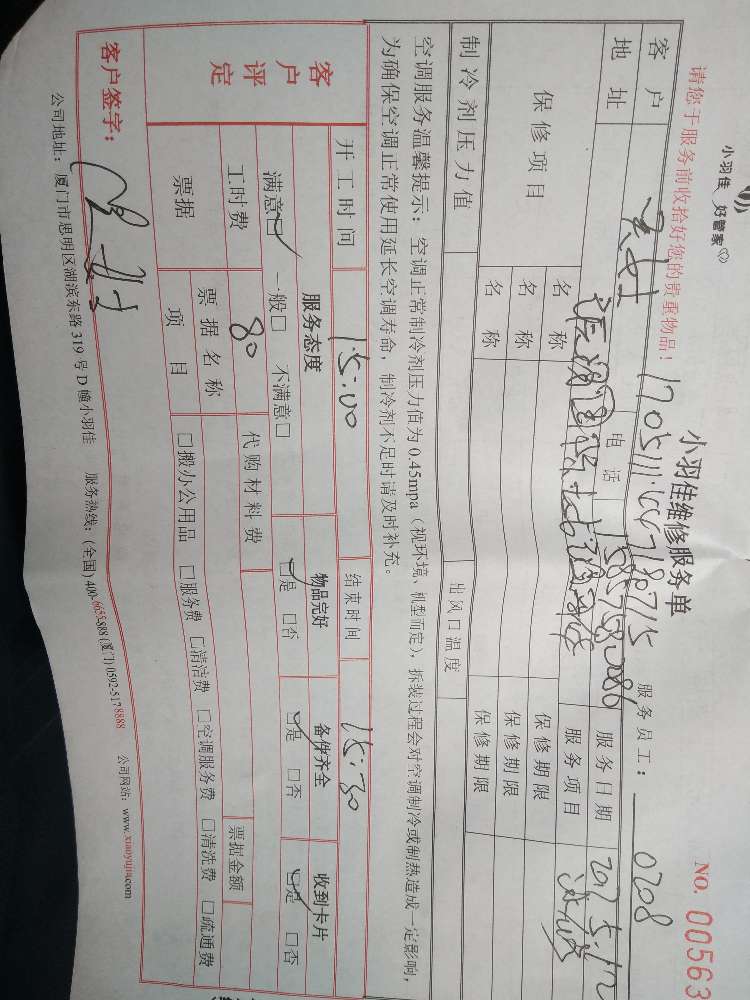 小羽佳 好管家
小羽佳维修服务单
NO. 00563
请您于服务前收拾好您的贵重物品!
服务员工: 0708
客户
电话
服务日期 2017.5.12
地址
服务项目
保修项目
名称 保修期限
名称 保修期限
名称 保修期限
制冷剂压力值 出风口温度
空调服务温馨提示: 空调正常制冷剂压力值为 0.45mpa (视环境、机型而定), 拆装过程会对空调制冷或制热造成一定影响,
为确保空调正常使用延长空调寿命, 制冷剂不足时请及时补充。
开工时间 15:00 结束时间 15:30
客户评定
服务态度 物品完好 备件齐全 收到卡片
满意□ 一般□ 不满意□ □是 □否 □是 □否 □是 □否
工时费 80 代购材料费 票据金额
票据 票据名称
项目 □搬办公用品 □服务费 □清洁费 □空调服务费 □清洗费 □疏通费
客户签字:
公司地址: 厦门市思明区湖滨东路 319 号 D 幢小羽佳 服务热线: (全国) 400-6655-888 (厦门) 0592-5178888 公司网站: www.xiaoyujia.com